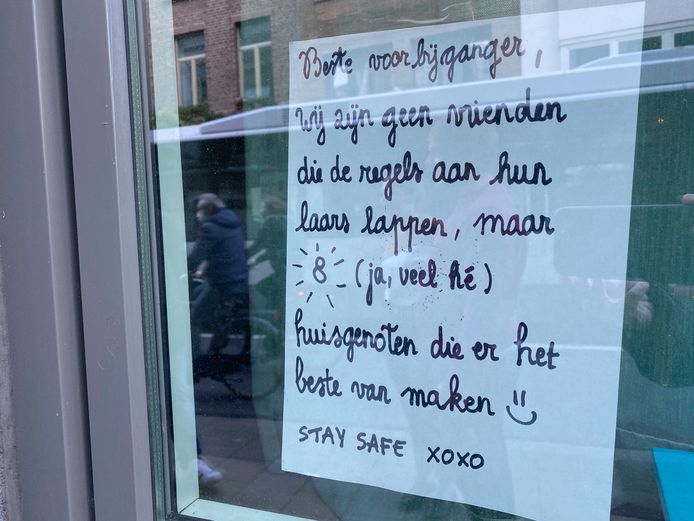 Beste voorbijganger,
wij zijn geen vrienden
die de regels aan hun
laars lappen, maar
8 (ja, veel hé)
huisgenoten die er het
beste van maken :)
STAY SAFE XOXO